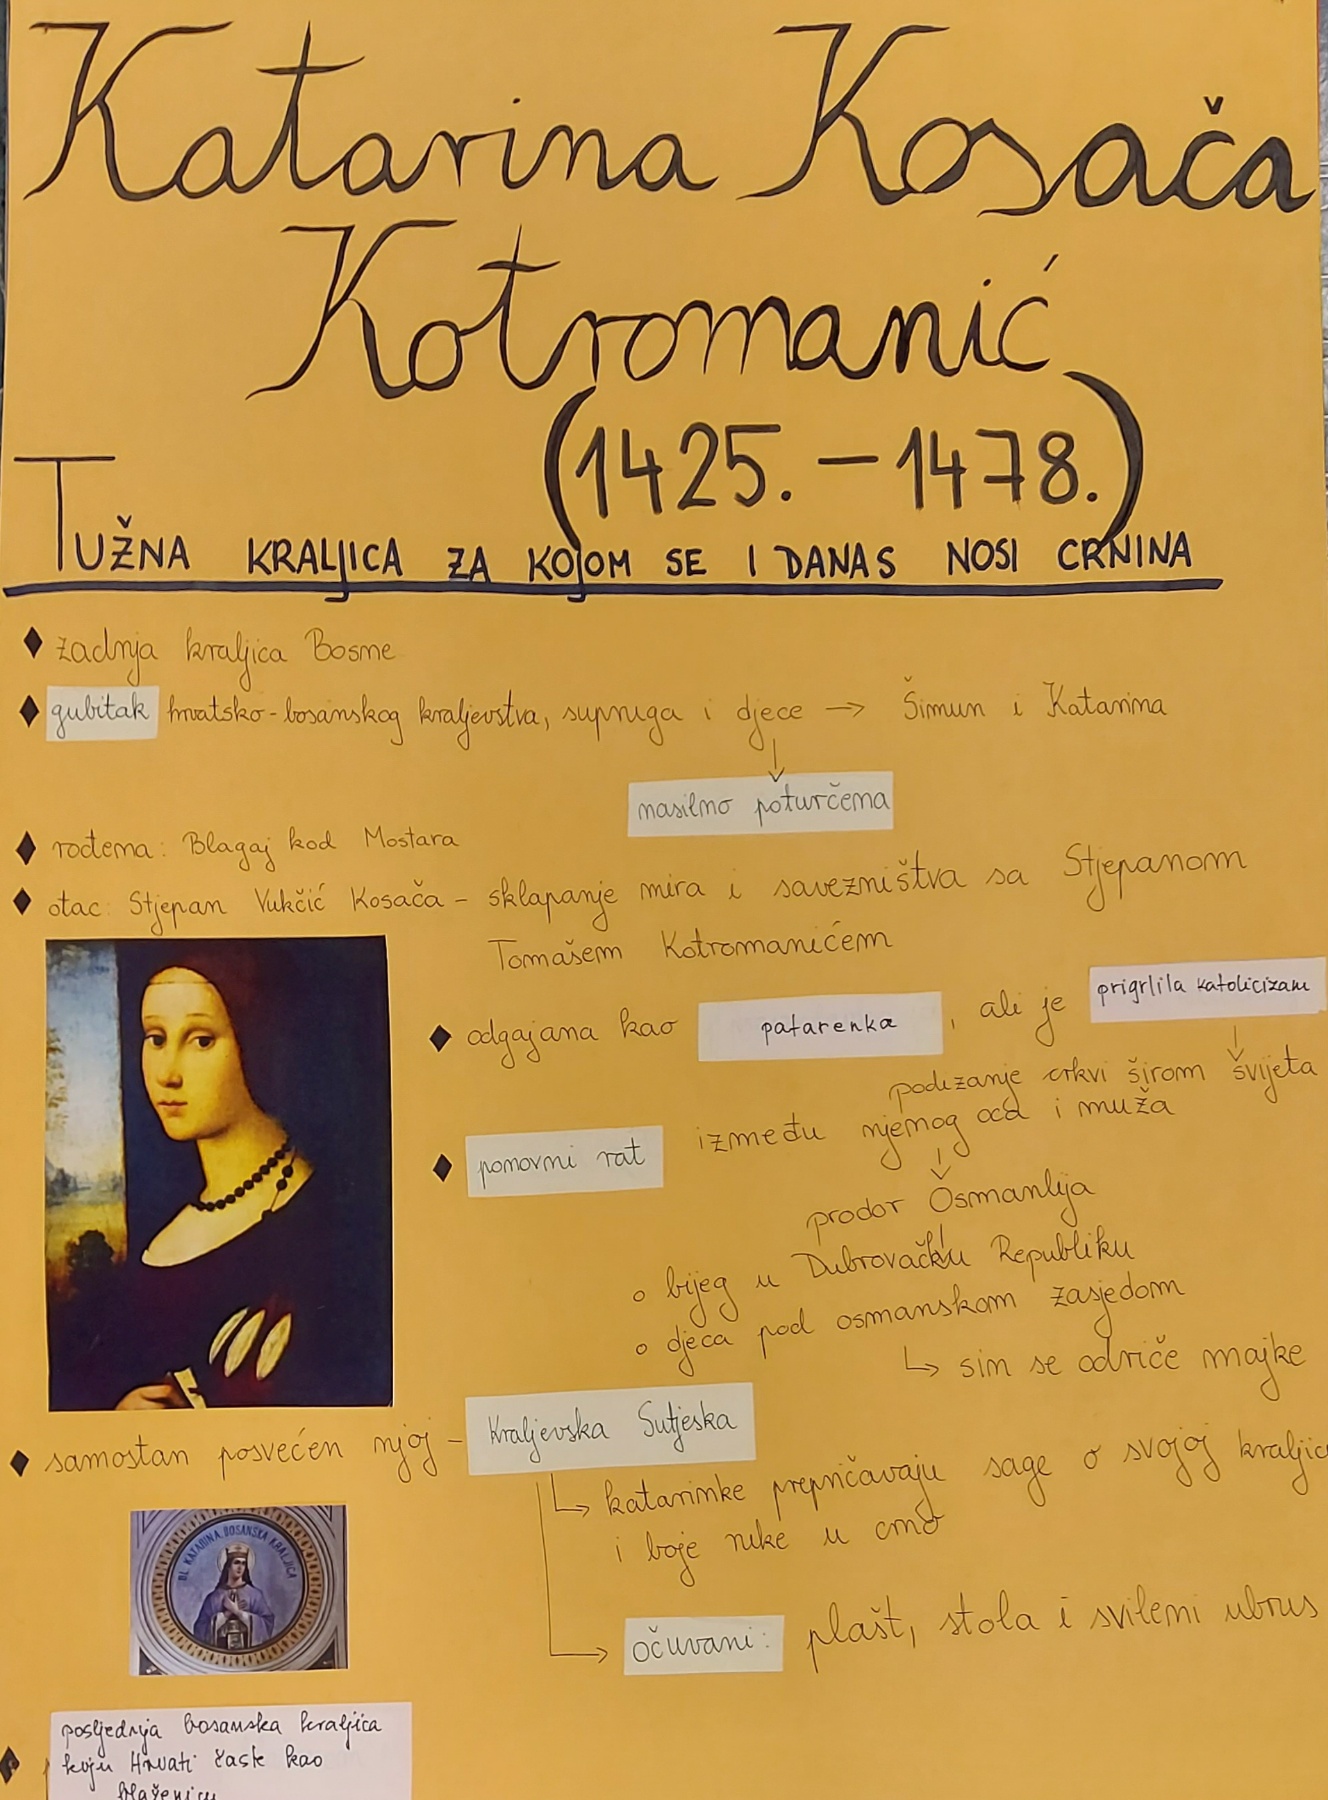 Katarina Kosača
Kotromanić
(1425. – 1478.)
TUŽNA KRALJICA ZA KOJOM SE I DANAS NOSI CRNINA
♦ zadnja kraljica Bosne
♦ gubitak hrvatsko-bosanskog kraljevstva, supruga i djece → Šimun i Katarina
↓
nasilno poturčena
♦ rođena: Blagaj kod Mostara
♦ otac: Stjepan Vukčić Kosača – sklapanje mira i savezništva sa Stjepanom
Tomašem Kotromanićem
♦ odgajana kao patarenka, ali je prigrlila katolicizam
↓
podizanje crkvi širom svijeta
♦ ponovni rat između njenog oca i muža
↓
prodor Osmanlija
○ bijeg u Dubrovačku Republiku
○ djeca pod osmanskom zasjedom
↳ sin se odriče majke
♦ samostan posvećen njoj – Kraljevska Sutjeska
↳ katarinke prepričavaju sage o svojoj kraljic
i boje ruke u crno
→ očuvani: plašt, stola i svileni ubrus
BL. KATARINA BOSANSKA KRALJICA
♦ posljednja bosanska kraljica
koju Hrvati časte kao
blaženicu